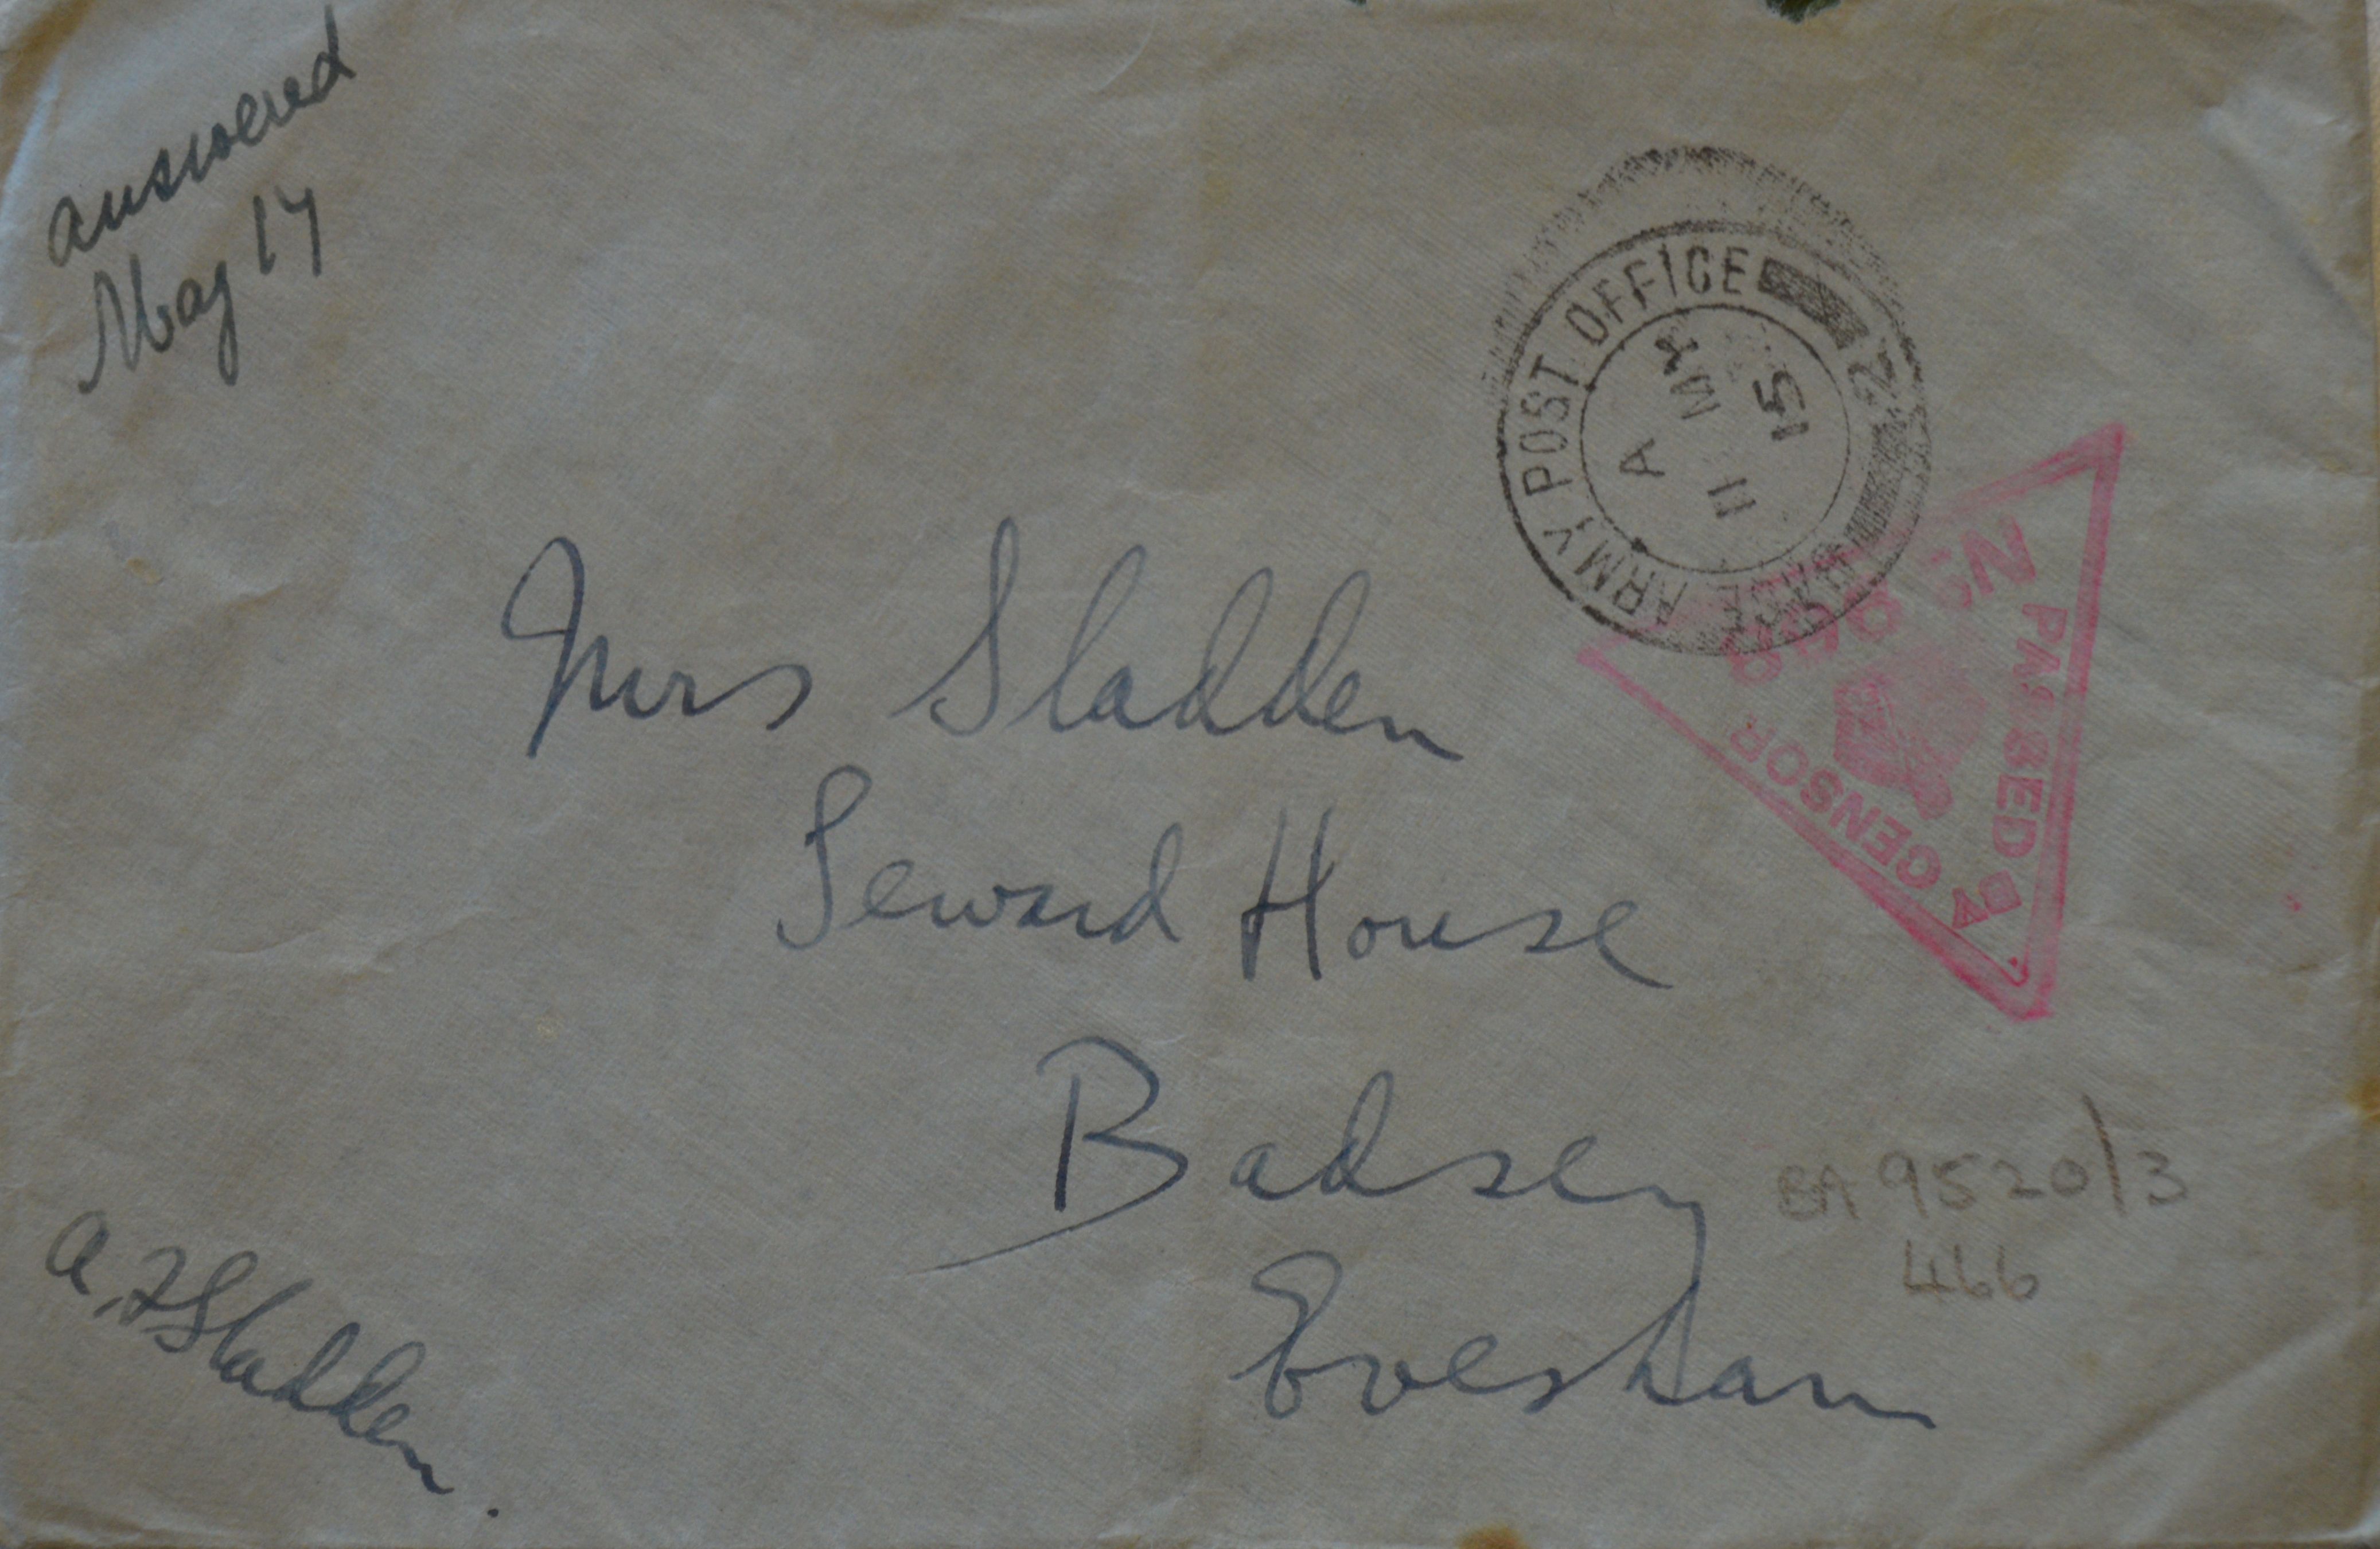 answered
May 17
ARMY POST OFFICE
2
A
11 MY
15
BASE
PASSED
CENSOR
Mrs Sladden
Seward House
Badsey
Evesham
BA 9520/3
466
A. F Sladden.